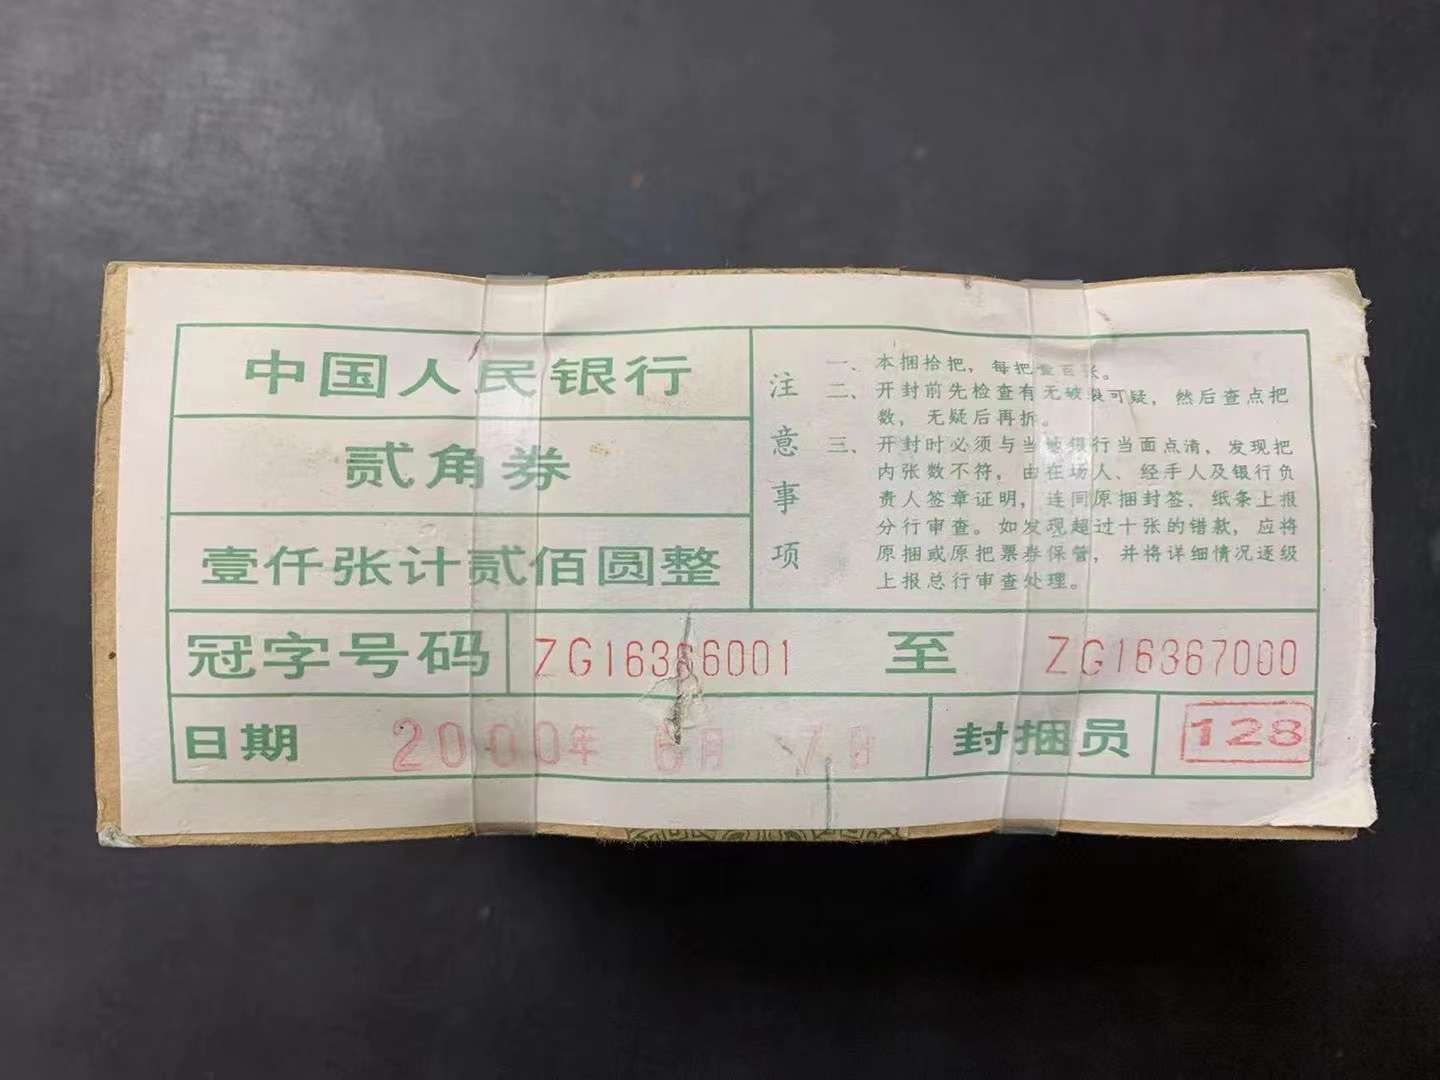 中国人民银行
贰角券
壹仟张计贰佰圆整
注意事项
一、本捆拾把，每把壹百张。
二、开封前先检查有无破裂可疑，然后查点把
数，无疑后再拆。
三、开封时必须与当地银行当面点清，发现把
内张数不符，由在场人、经手人及银行负
责人签章证明，连同原捆封签、纸条上报
分行审查。如发现超过十张的错款，应将
原捆或原把票券保管，并将详细情况逐级
上报总行审查处理。
冠字号码 ZG16366001 至 ZG16367000
日期 2000年 6月 7日 封捆员 128